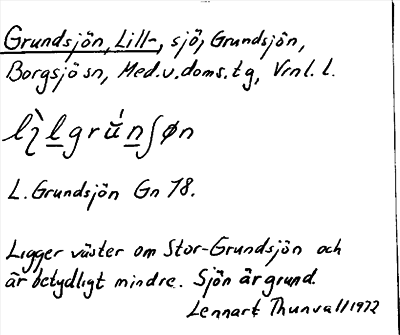 Grundsjön, Lill-, sjö, Grundsjön,
Borgsjö sn, Med.v.doms.tg, Vrnl. l.
L. Grundsjön Gn 78.
Ligger väster om Stor-Grundsjön och
är betydligt mindre. Sjön är grund.
Lennart Thunvall 1972